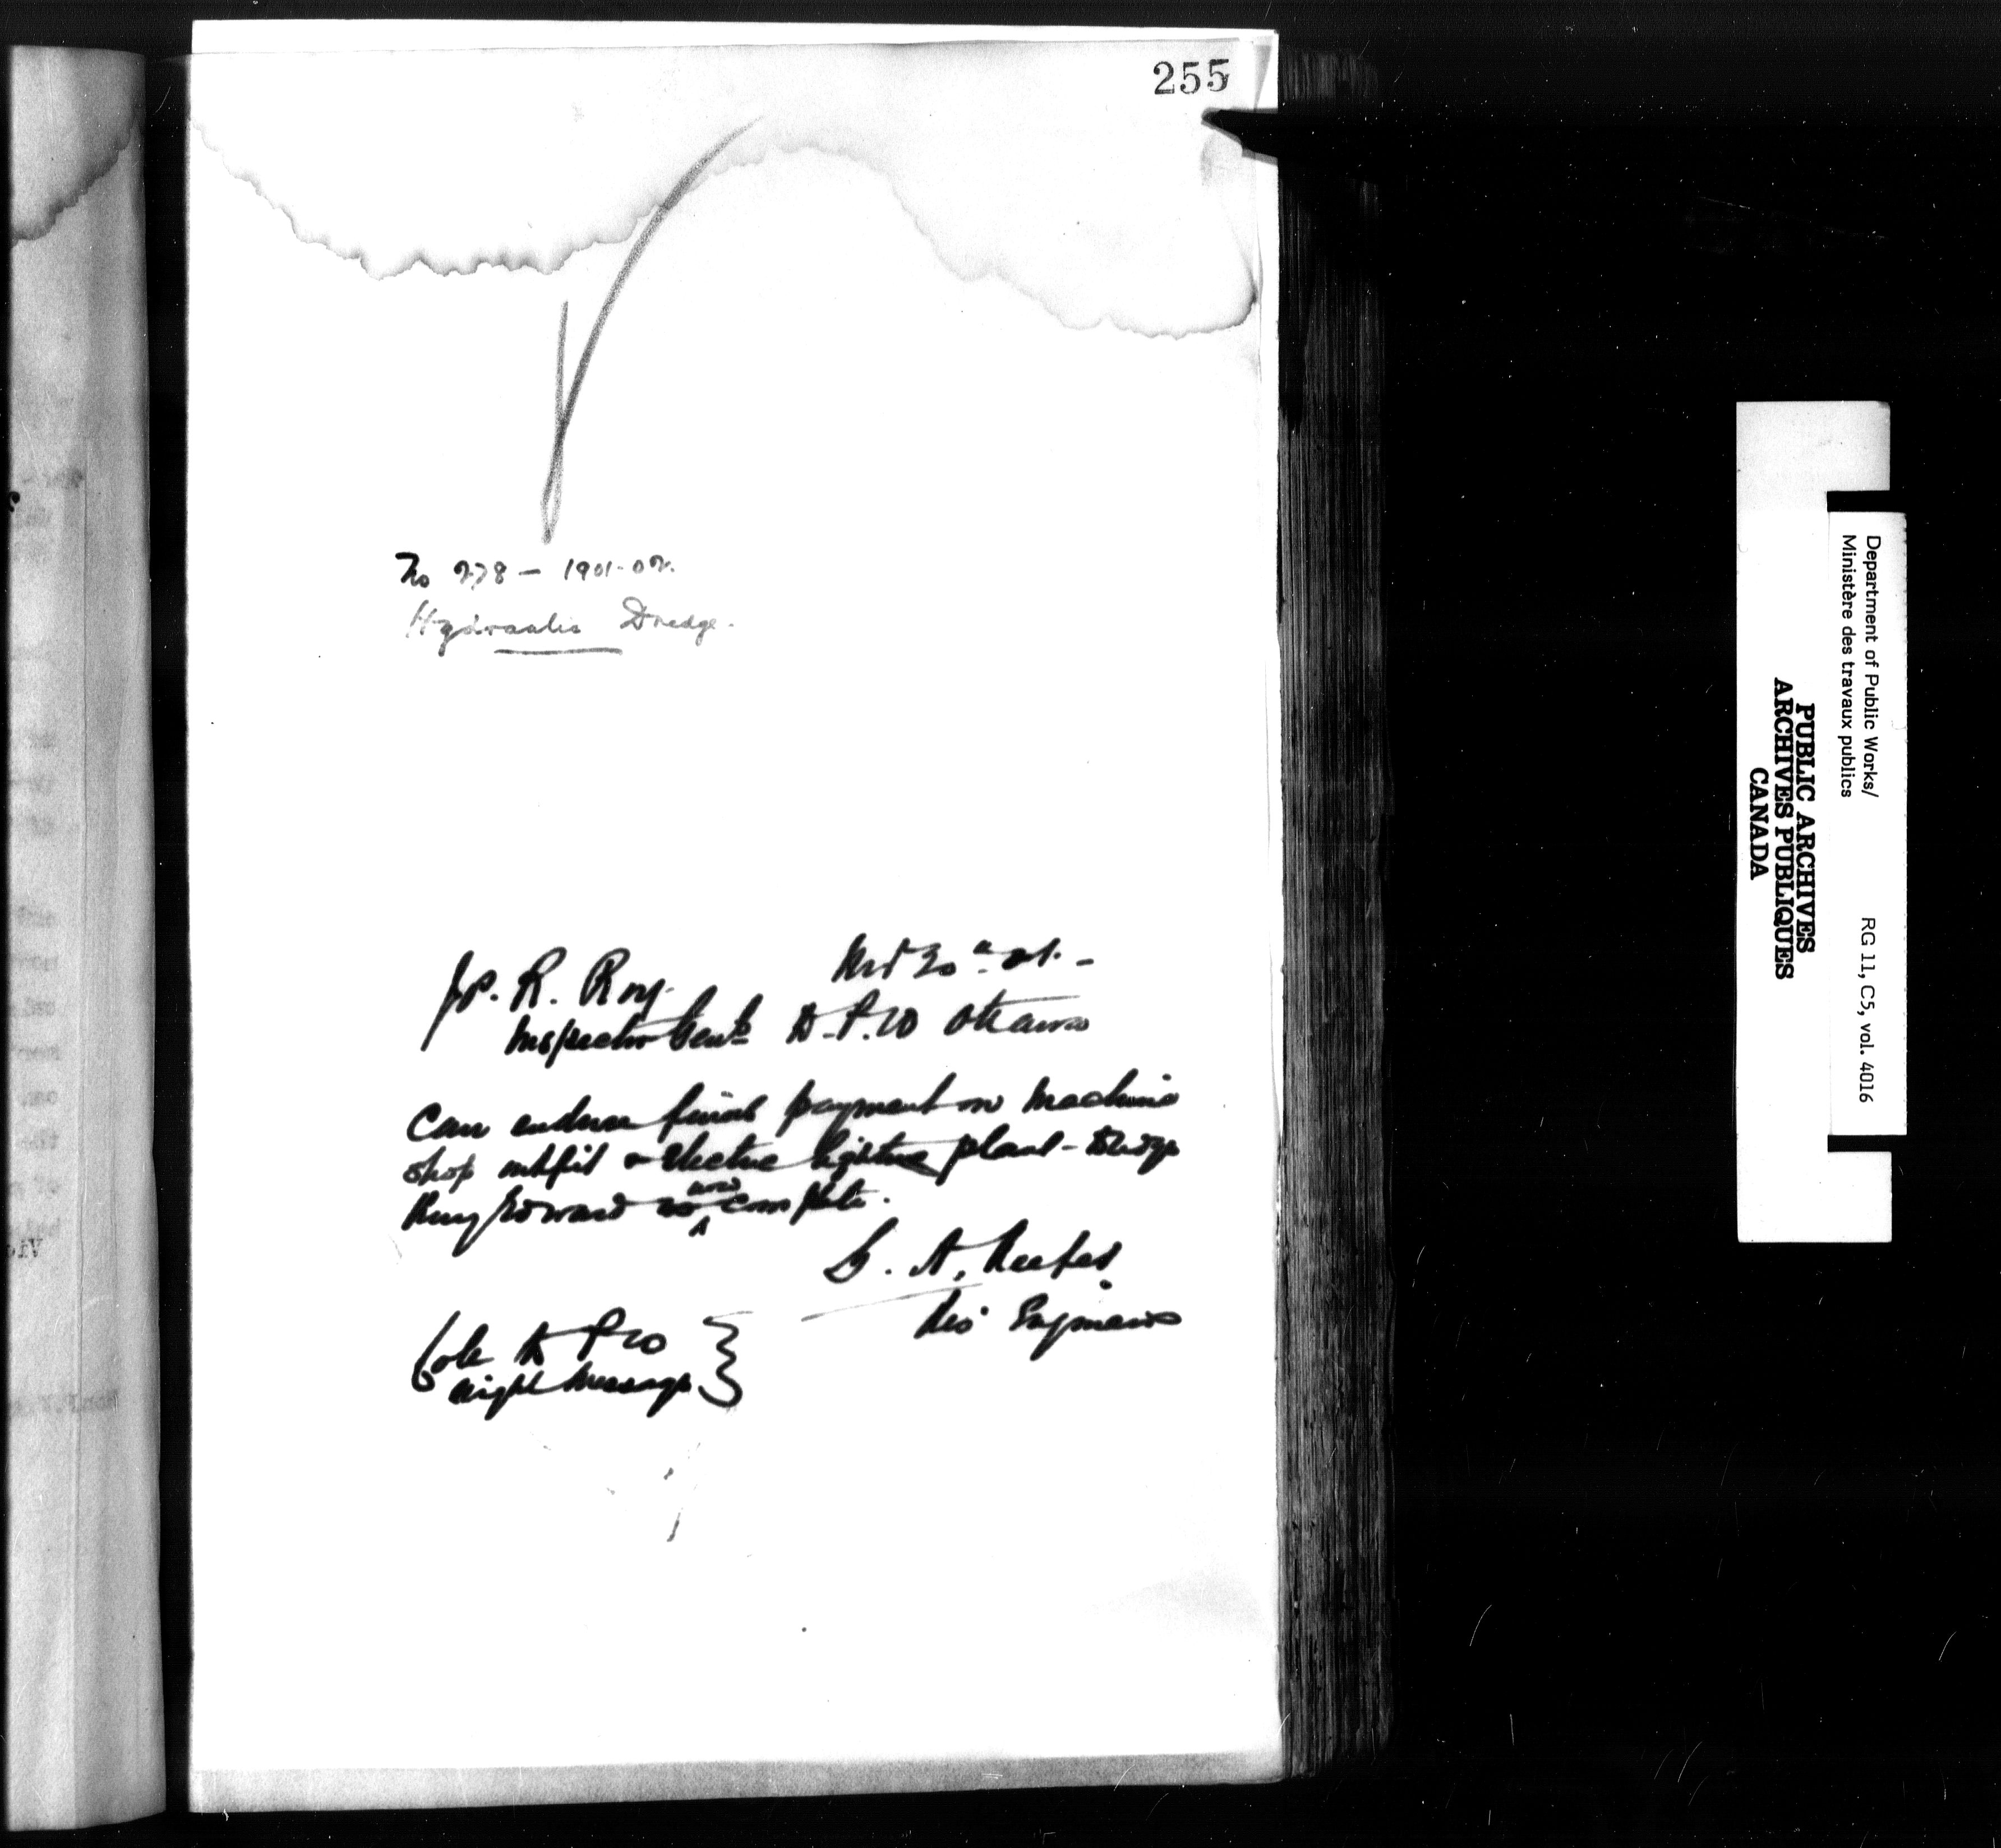 255
No 278 — 1901-02.
Hydraulic Dredge.
30th 01. -
J.P. R. Roy.
Inspector Genl D.P.W Ottawa
Can endorse final payment on machine
shop outfit & electric lighting plant - Dredge
King Edward as now complete.
G. A. Keefer
Res Engineer
Coll D P W
night message
Department of Public Works/
Ministère des travaux publics
RG 11, C5, vol. 4016
PUBLIC ARCHIVES
ARCHIVES PUBLIQUES
CANADA